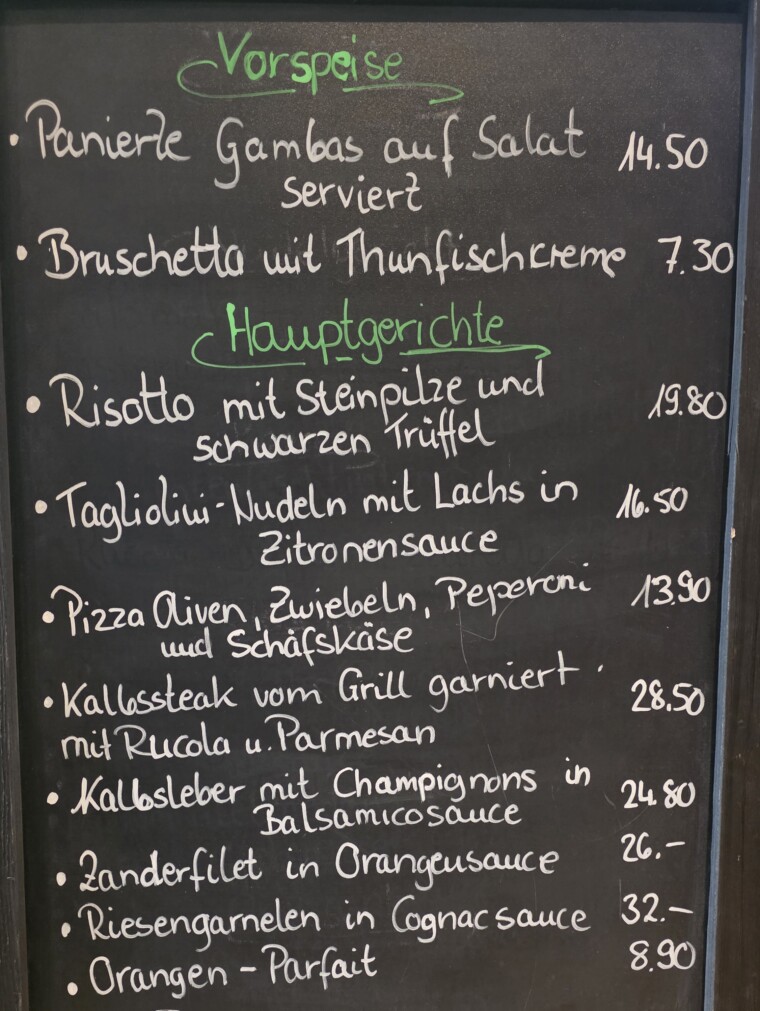 Vorspeise
• Panierte Gambas auf Salat 14.50
serviert
• Bruschetta mit Thunfischcreme 7.30
Hauptgerichte
• Risotto mit Steinpilze und 19.80
schwarzen Trüffel
• Tagliolini-Nudeln mit Lachs in 16.50
Zitronensauce
• Pizza Oliven, Zwiebeln, Peperoni 13.90
und Schafskäse
• Kalbssteak vom Grill garniert 28.50
mit Rucola u. Parmesan
• Kalbsleber mit Champignons in 24.80
Balsamicosauce
• Zanderfilet in Orangensauce 26.–
• Riesengarnelen in Cognacsauce 32.–
• Orangen - Parfait 8.90